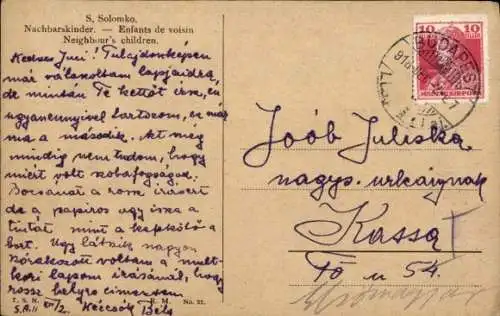 S. Solomko.
Nachbarskinder. — Enfants de voisin
Neighbour's children.
Kedves Juci! Tulajdonképen
már válaszoltam lapjaidra,
de mintán Te kettőt írsz, én
ugyanennyivel tartozom, ez már
ma a második. Azt még
mindig nem tudom, hogy
miért volt szobafogságod.
Bocsánat a rossz írásért
de a papiros úgy issza a
tintát mint a kefekötő a
bort. Úgy látszik nagyon
szórakozott voltam a mult-
kori lapom írásánál, hogy
rossz helyre címeztem
T. S. N. R. M. No. 21.
Kézcsók Béla
10 10
MAGYAR KIR. POSTA
BUDAPEST
Joób Juliska
nagys. urleánynak
Kassa
Fő u 54.